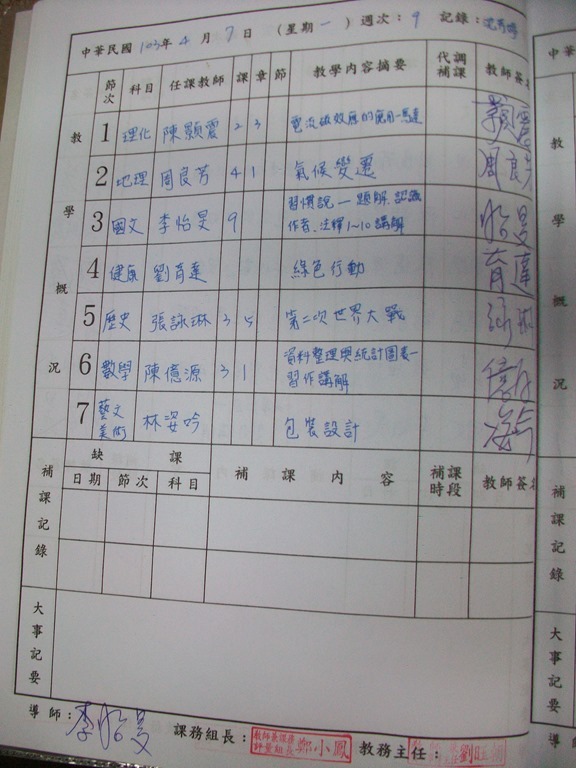 中華民國 103年 4 月 7 日 (星期一) 週次：9 記錄：
教學概況 節次 科目 任課教師 課 章 節 教學內容摘要 代調補課 教師簽名
1 理化 陳顥震 2 3 電流磁效應的應用-馬達
2 地理 周良芳 4 1 氣候變遷 周良芳
3 國文 李怡旻 9 習慣說—題解、認識
作者、注釋1~10講解 怡旻
4 健康 劉育達 綠色行動 育達
5 歷史 張詠琳 3 5 第二次世界大戰 詠琳
6 數學 陳億源 3 1 資料整理與統計圖表—
習作講解
7 藝文
美術 林姿吟 包裝設計
補課記錄 缺課 補課內容 補課時段 教師簽名
日期 節次 科目
大事記要
導師：李怡旻 課務組長： 鄭小鳳 教務主任：
中華
教學概況
補課記錄
大事記要
導師